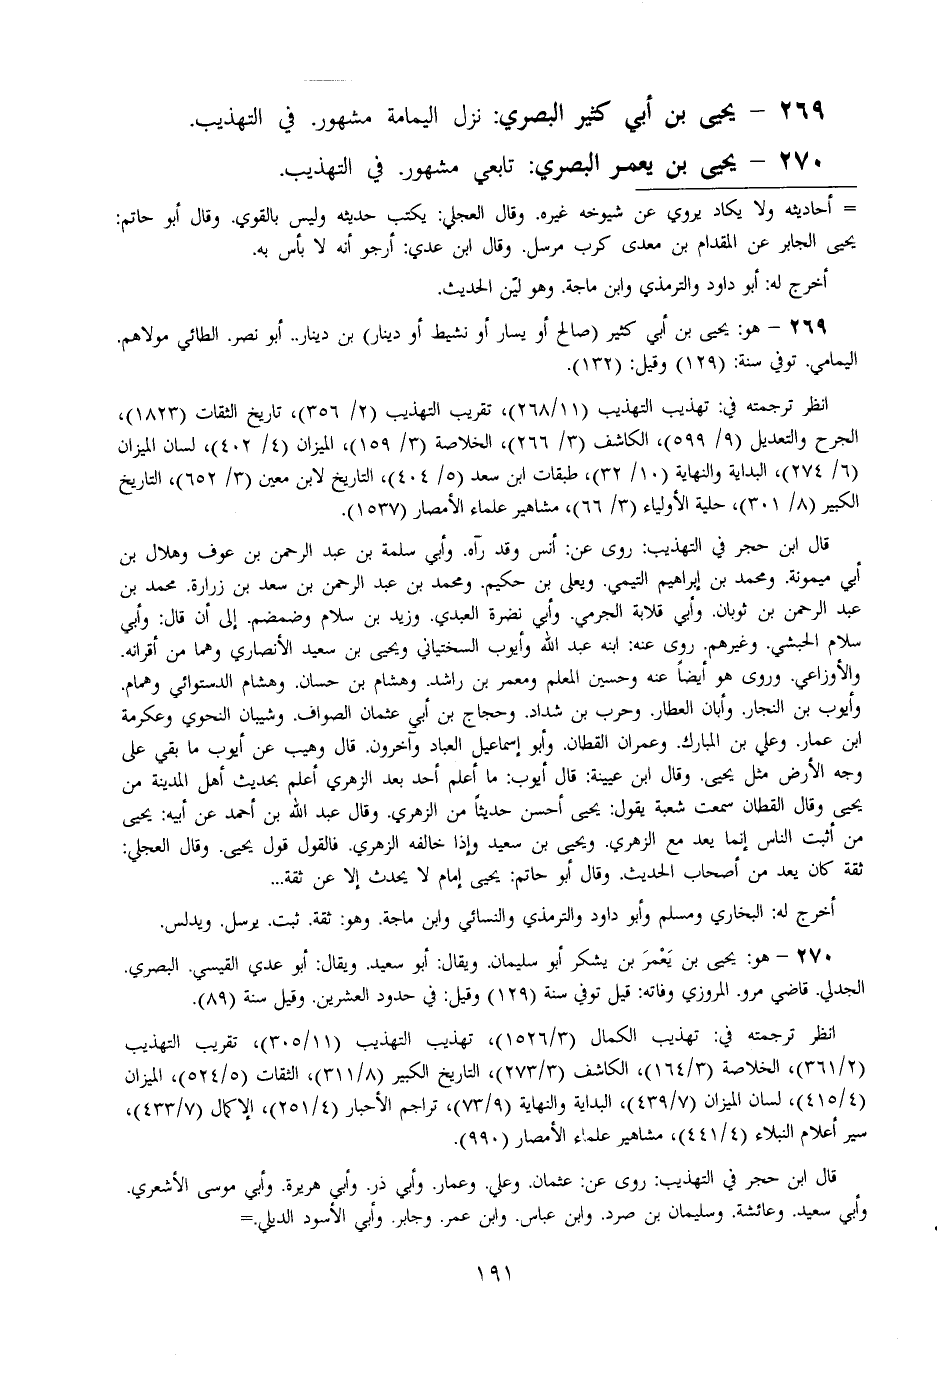 ٢٦٩ – يحيى بن أبي كثير البصري: نزل اليمامة مشهور. في التهذيب.
٢٧٠ – يحيى بن يعمر البصري: تابعي مشهور. في التهذيب.
= أحاديثه ولا يكاد يروي عن شيوخه غيره. وقال العجلي: يكتب حديثه وليس بالقوي. وقال أبو حاتم:
يحيى الجابر عن المقدام بن معدى كرب مرسل. وقال ابن عدي: أرجو أنه لا بأس به.
أخرج له: أبو داود والترمذي وابن ماجة. وهو ليّن الحديث.
٢٦٩ – هو: يحيى بن أبي كثير (صالح أو يسار أو نشيط أو دينار) بن دينار.. أبو نصر. الطائي مولاهم.
اليمامي. توفي سنة: (١٢٩) وقيل: (١٣٢).
انظر ترجمته في: تهذيب التهذيب (١١/ ٢٦٨)، تقريب التهذيب (٢/ ٣٥٦)، تاريخ الثقات (١٨٢٣)،
الجرح والتعديل (٩/ ٥٩٩)، الكاشف (٣/ ٢٦٦)، الخلاصة (٣/ ١٥٩)، الميزان (٤/ ٤٠٢)، لسان الميزان
(٦/ ٢٧٤)، البداية والنهاية (١٠/ ٣٢)، طبقات ابن سعد (٥/ ٤٠٤)، التاريخ لابن معين (٣/ ٦٥٢)، التاريخ
الكبير (٨/ ٣٠١)، حلية الأولياء (٣/ ٦٦)، مشاهير علماء الأمصار (١٥٣٧).
قال ابن حجر في التهذيب: روى عن: أنس وقد رآه. وأبي سلمة بن عبد الرحمن بن عوف وهلال بن
أبي ميمونة. ومحمد بن إبراهيم التيمي. ويعلى بن حكيم. ومحمد بن عبد الرحمن بن سعد بن زرارة. محمد بن
عبد الرحمن بن ثوبان. وأبي قلابة الجرمي. وأبي نضرة العبدي. وزيد بن سلام وضمضم. إلى أن قال: وأبي
سلام الحبشي. وغيرهم. روى عنه: ابنه عبد الله وأيوب السختياني ويحيى بن سعيد الأنصاري وهما من أقرانه.
والأوزاعي. وروى هو أيضاً عنه وحسين المعلم ومعمر بن راشد. وهشام بن حسان. وهشام الدستوائي وهمام.
وأيوب بن النجار. وأبان العطار. وحرب بن شداد. وحجاج بن أبي عثمان الصواف. وشيبان النحوي وعكرمة
ابن عمار. وعلي بن المبارك. وعمران القطان. وأبو إسماعيل العباد وآخرون. قال وهيب عن أيوب ما بقي على
وجه الأرض مثل يحيى. وقال ابن عيينة: قال أيوب: ما أعلم أحد بعد الزهري أعلم بحديث أهل المدينة من
يحيى وقال القطان سمعت شعبة يقول: يحيى أحسن حديثاً من الزهري. وقال عبد الله بن أحمد عن أبيه: يحيى
من أثبت الناس إنما يعد مع الزهري. ويحيى بن سعيد وإذا خالفه الزهري. فالقول قول يحيى. وقال العجلي:
ثقة كان يعد من أصحاب الحديث. وقال أبو حاتم: يحيى إمام لا يحدث إلا عن ثقة...
أخرج له: البخاري ومسلم وأبو داود والترمذي والنسائي وابن ماجة. وهو: ثقة. ثبت. يرسل. ويدلس.
٢٧٠ – هو: يحيى بن يَعْمَرَ بن يشكر أبو سليمان. ويقال: أبو سعيد. ويقال: أبو عدي القيسي. البصري.
الجدلي. قاضي مرو. المروزي وفاته: قيل توفي سنة (١٢٩) وقيل: في حدود العشرين. وقيل سنة (٨٩).
انظر ترجمته في: تهذيب الكمال (١٥٢٦/٣)، تهذيب التهذيب (٣٠٥/١١)، تقريب التهذيب
(٣٦١/٢)، الخلاصة (١٦٤/٣)، الكاشف (٢٧٣/٣)، التاريخ الكبير (٣١١/٨)، الثقات (٥٢٤/٥)، الميزان
(٤١٥/٤)، لسان الميزان (٤٣٩/٧)، البداية والنهاية (٧٣/٩)، تراجم الأحبار (٢٥١/٤)، الإكمال (٤٣٣/٧)،
سير أعلام النبلاء (٤٤١/٤)، مشاهير علماء الأمصار (٩٩٠).
قال ابن حجر في التهذيب: روى عن: عثمان. وعلي. وعمار. وأبي ذر. وأبي هريرة. وأبي موسى الأشعري.
وأبي سعيد. وعائشة. وسليمان بن صرد. وابن عباس. وابن عمر. وجابر. وأبي الأسود الديلي.=
١٩١